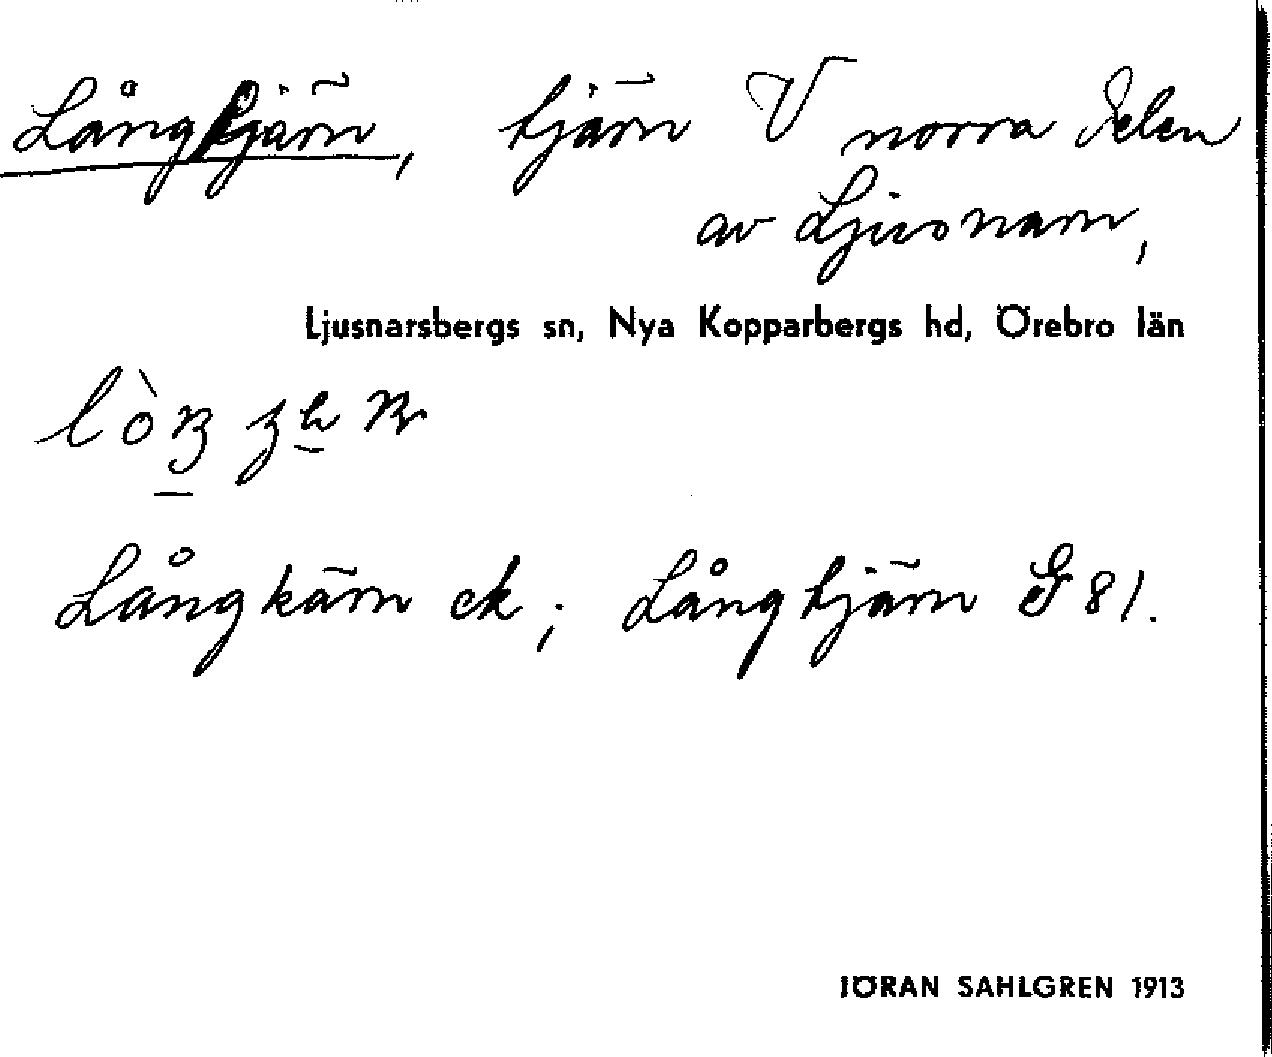 Långtjärn, tjärn V norra delen
av Ljusnaren,
Ljusnarsbergs sn, Nya Kopparbergs hd, Örebro län
Långkärn ek; Långtjärn G 81.
JÖRAN SAHLGREN 1913